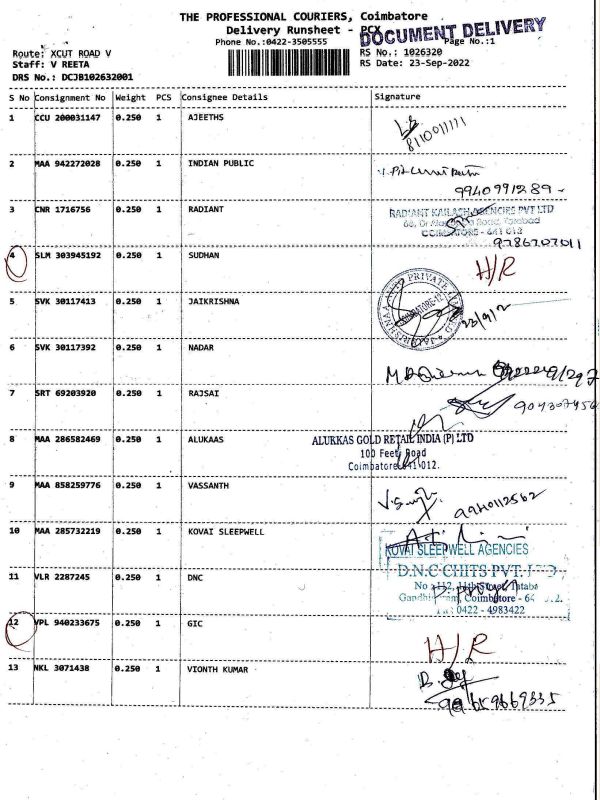 THE PROFESSIONAL COURIERS, Coimbatore
Delivery Runsheet - PCX
DOCUMENT DELIVERY
Phone No.:0422-3505555
Page No.:1
Route: XCUT ROAD V
RS No.: 1026320
Staff: V REETA
RS Date: 23-Sep-2022
DRS No.: DCJB102632001
S No Consignment No Weight PCS Consignee Details Signature
1 CCU 200031147 0.250 1 AJEETHS
8110011111
2 MAA 942272028 0.250 1 INDIAN PUBLIC
9940991289
3 CNR 1716756 0.250 1 RADIANT
RADIANT KAILASH AGENCIES PVT LTD
Road, Tatabad
COIMBATORE - 641 012
9786707011
4 SLM 303945192 0.250 1 SUDHAN H/R
5 SVK 30117413 0.250 1 JAIKRISHNA
PRIVATE
COIMBATORE-12
23/9/2
6 SVK 30117392 0.250 1 NADAR
7 SRT 69203920 0.250 1 RAJSAI
8 MAA 286582469 0.250 1 ALUKAAS
ALURKAS GOLD RETAIL INDIA (P) LTD
100 Feet Road
Coimbatore 641 012.
9 MAA 858259776 0.250 1 VASSANTH
9940112562
10 MAA 285732219 0.250 1 KOVAI SLEEPWELL
KOVAI SLEEPWELL AGENCIES
11 VLR 2287245 0.250 1 DNC
D.N.C CHITS PVT. LTD
No 112, 11th Street, Tataba
Coimbatore - 64 2.
0422 - 4983422
12 VPL 940233675 0.250 1 GIC
H/R
13 NKL 3071438 0.250 1 VIONTH KUMAR